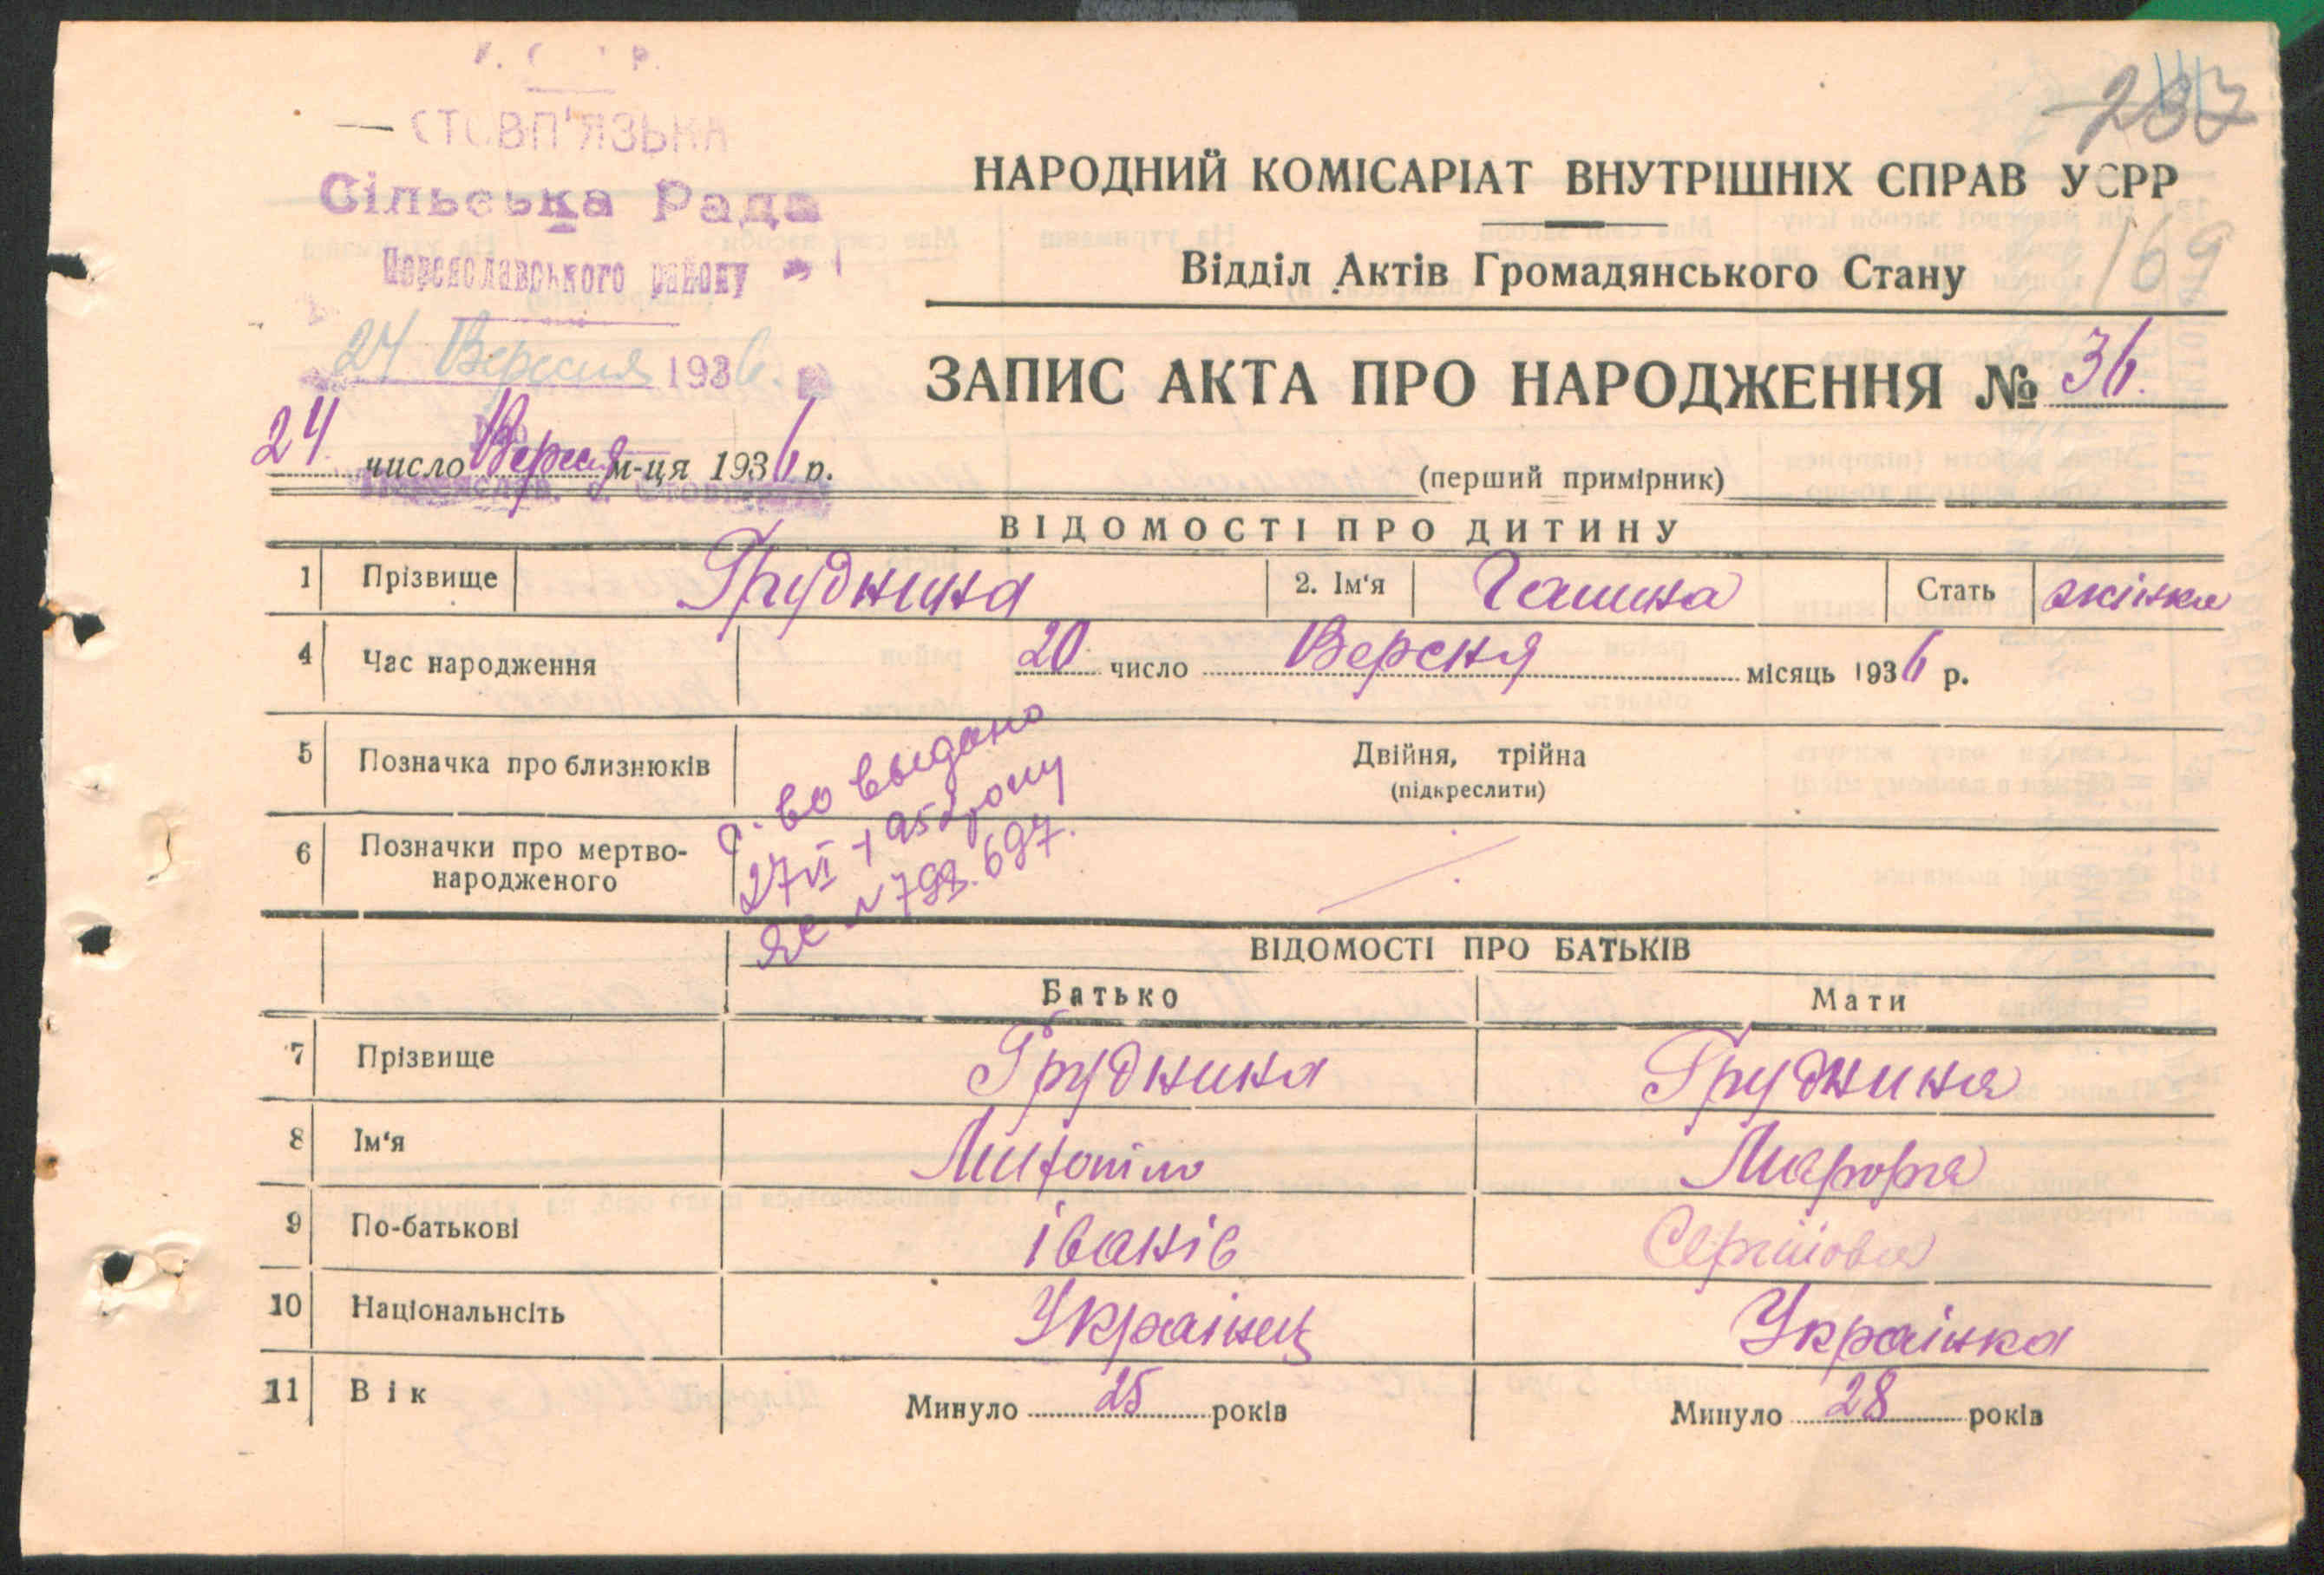 СТОВП'ЯЗЬКА
Сільська Рада
Переяславського району
24 Вересня 1936.
24 число Вересня м-ця 1936 р.
237
169
НАРОДНИЙ КОМІСАРІАТ ВНУТРІШНІХ СПРАВ УСРР
Відділ Актів Громадянського Стану
ЗАПИС АКТА ПРО НАРОДЖЕННЯ № 36.
(перший примірник)
ВІДОМОСТІ ПРО ДИТИНУ
1 Прізвище Грудкина 2. Ім'я Галина Стать жінка
4 Час народження 20 число Верскя місяць 1936 р.
5 Позначка про близнюків Двійня, трійна
(підкреслити)
6 Позначки про мертво-
народженого
с-во выдано
27 VI
ЯЄ № 798.697.
ВІДОМОСТІ ПРО БАТЬКІВ
Батько Мати
7 Прізвище Грудкина Грудкина
8 Ім'я
9 По-батькові іванів Сергіїовна
10 Національнсіть Українец Українка
11 Вік Минуло 25 років Минуло 28 років